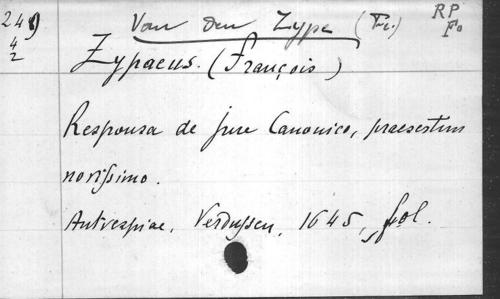 249 Van den Zype (Fr.) RP
4 Fo
2 Zypaeus. (François)
Responsa de jure Canonico, praesertim
novissimo.
Antverpiae, Verdussen, 1645, fol.